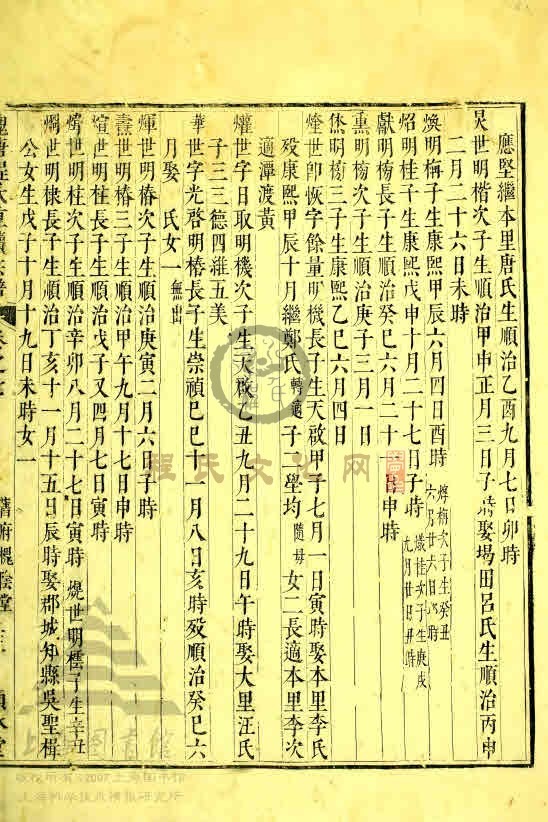 應堅繼本里唐氏生順治乙酉九月七日卯時
炅世明楷次子生順治甲申正月三日子時娶堨田呂氏生順治丙申
二月二十六日未時
煥明梅子生康熙甲辰六月四日酉時
梅次子生癸丑
六月廿六日 時
炤明桂子生康熙戊申十月二十七日子時
桂次子生庚戌
九月廿日丑時
獻明橗長子生順治癸巳六月二十 日申時
熏明橗次子生順治庚子三月一日
明橗三子生康熙乙巳六月四日
世即恢字餘量明機長子生天啟甲子七月一日寅時娶本里李氏
歿康熙甲辰十月繼鄭氏轉適子二學均隨母女二長適本里李次
適潭渡黃
爟世字日取明機次子生天啟乙丑九月二十九日午時娶大里汪氏
子三三德四維五美
華世字光啓明椿長子生崇禎己巳十一月八日亥時歿順治癸巳六
月娶 氏女一無出
煇世明椿次子生順治庚寅二月六日子時
燾世明椿三子生順治甲午九月十七日申時
煊世明柱長子生順治戊子又四月七日寅時
世明柱次子生順治辛卯八月二十七日寅時
世明標子生辛丑
世明棣長子生順治丁亥十一月十五日辰時娶郡城知縣吳聖楫
公女生戊子十月十九日未時女一
槐塘程氏重續宗譜
卷之七
槐蔭堂
程氏文化网
上海图书馆
版权所有©2007上海图书馆
上海科学技术情报研究所